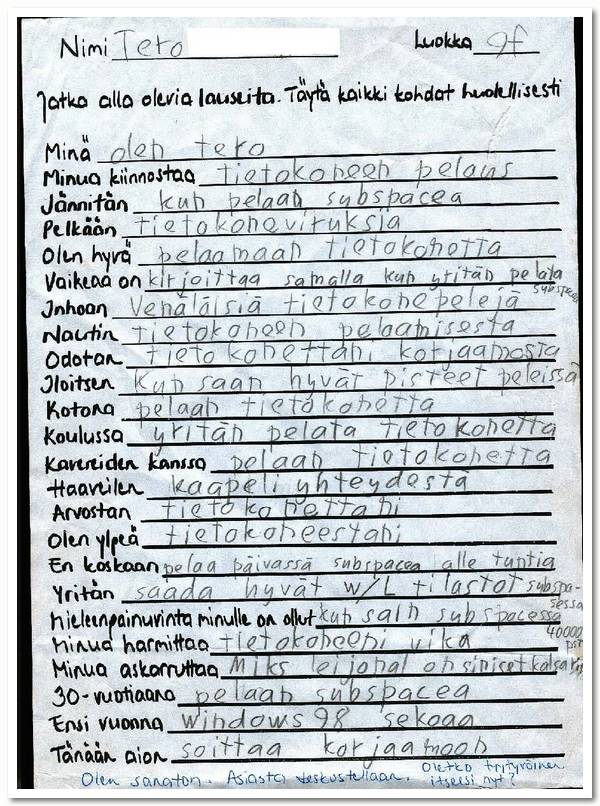 Nimi Tero Luokka 9f
Jatka alla olevia lauseita. Täytä kaikki kohdat huolellisesti
Minä olen tero
Minua kiinnostaa tietokoneen pelaus
Jännitän kun pelaan subspacea
Pelkään tietokoneviruksia
Olen hyvä pelaamaan tietokonetta
Vaikeaa on kirjoittaa samalla kun yritän pelata subspacea
Inhoan Venäläisiä tietokonepelejä
Nautin tietokoneen pelaamisesta
Odotan tietokonettani korjaamosta
Iloitsen kun saan hyvät pisteet peleissä
Kotona pelaan tietokonetta
Koulussa yritän pelata tietokonetta
Kavereiden kanssa pelaan tietokonetta
Haaveilen kaapeliyhteydestä
Arvostan tietokonettani
Olen ylpeä tietokoneestani
En koskaan pelaa päivässä subspacea alle tuntia
Yritän saada hyvät w/L tilastot subspa-
sessa
Mieleenpainuvinta minulle on ollut kun sain subspacessa
40000
Minua harmittaa tietokoneeni vika
Minua askarruttaa Miks leijonal on siniset kalsarit
30-vuotiaana pelaan subspacea
Ensi vuonna windows 98 sekoaa
Tänään aion soittaa korjaamoon
Olen sanaton. Asiasta keskustellaan. Oletko tyytyväinen
itseesi nyt?